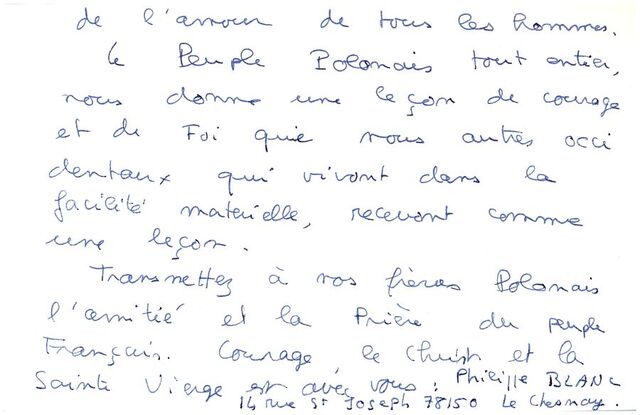 de l'amour de tous les hommes.
Le Peuple Polonais tout entier,
nous donne une leçon de courage
et de Foi que nous autres occi
dentaux qui vivont dans la
facilité materielle, recevont comme
une leçon.
Transmettez à vos frères Polonais
l'amitié et la Prière du peuple
Français. Courage le Christ et la
Sainte Vierge est avec vous. Philippe BLANC
14 rue St Joseph 78150 Le Chesnay.